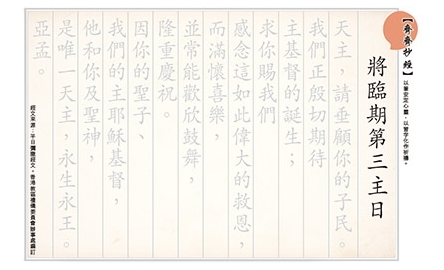 【齊齊抄經】以筆安定心靈，以習字化作祈禱。
將臨期第三主日
天主，請垂顧你的子民。
我們正殷切期待
主基督的誕生；
求你賜我們
感念這如此偉大的救恩，
而滿懷喜樂，
並常能歡欣鼓舞，
隆重慶祝。
因你的聖子、
我們的主耶穌基督，
他和你及聖神，
是唯一天主，永生永王。
亞孟。
經文來源：平日彌撒經文。香港教區禮儀委員會辦事處編訂